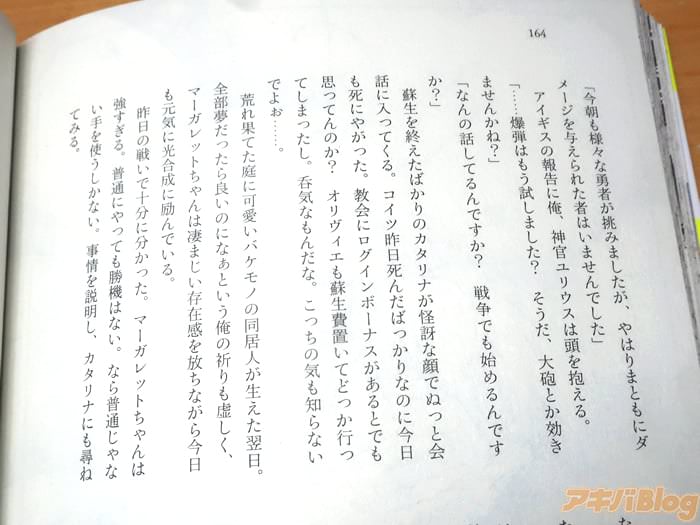 164
「今朝も様々な勇者が挑みましたが、やはりまともにダ
メージを与えられた者はいませんでした」
アイギスの報告に俺、神官ユリウスは頭を抱える。
「……爆弾はもう試しました？　そうだ、大砲とか効き
ませんかね？」
「なんの話してるんですか？　戦争でも始めるんです
か？」
蘇生を終えたばかりのカタリナが怪訝な顔でぬっと会
話に入ってくる。コイツ昨日死んだばっかりなのに今日
も死にやがった。教会にログインボーナスがあるとでも
思ってんのか？　オリヴィエも蘇生費置いてどっか行っ
てしまったし。呑気なもんだな。こっちの気も知らない
でよぉ……。
荒れ果てた庭に可愛いバケモノの同居人が生えた翌日。
全部夢だったら良いのになぁという俺の祈りも虚しく、
マーガレットちゃんは凄まじい存在感を放ちながら今日
も元気に光合成に励んでいる。
昨日の戦いで十分に分かった。マーガレットちゃんは
強すぎる。普通にやっても勝機はない。なら普通じゃな
い手を使うしかない。事情を説明し、カタリナにも尋ね
てみる。
アキバBlog